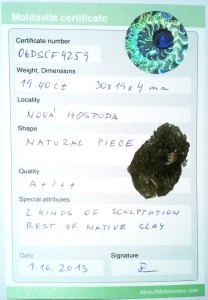 Moldavite certificate
Certificate number
06DSCF4259
Weight, Dimensions
19.40ct 30x19x4 mm
Locality
NOVÁ HOSPODA
Shape
NATURAL PIECE
Quality
A+/++
Special attributes
2 KINDS OF SCULPTATION
REST OF NATIVE CLAY
Date
Signature
1.10.2013
AboutMoldavites.com